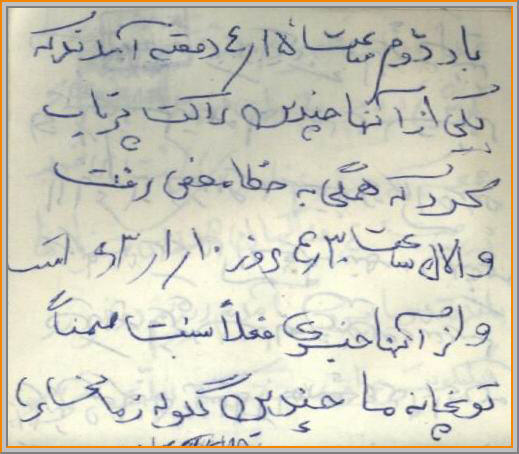 بار دوم ساعت ۴/۱۵ دقیقه آمدند که
یکی از آنها چندین راکت پرتاب
کرد که همگی به خطا رفت
و الان ساعت ۴/۳۰ روز ۱۰/۱/ است
و از آنها خبری فعلاً نیست ضمناً
توپخانه ما چندین گلوله زمانی